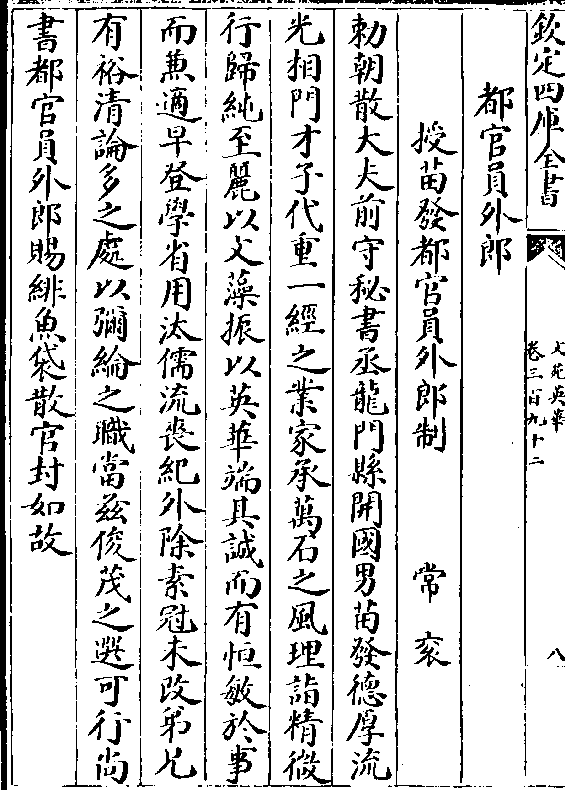 欽定四庫全書
文苑英華
卷三百九十二
八
都官員外郎
授苗發都官員外郎制 常衮
勅朝散大夫前守秘書丞龍門縣開國男苗發德厚流
光相門才子代重一經之業家承萬石之風理詣精微
行歸純至麗以文藻振以英華端其誠而有恒敏於事
而兼適早登學省用汰儒流喪紀外除素冠未改弟兄
有裕清論多之處以彌綸之職當兹俊茂之選可行尚
書都官員外郎賜緋魚袋散官封如故